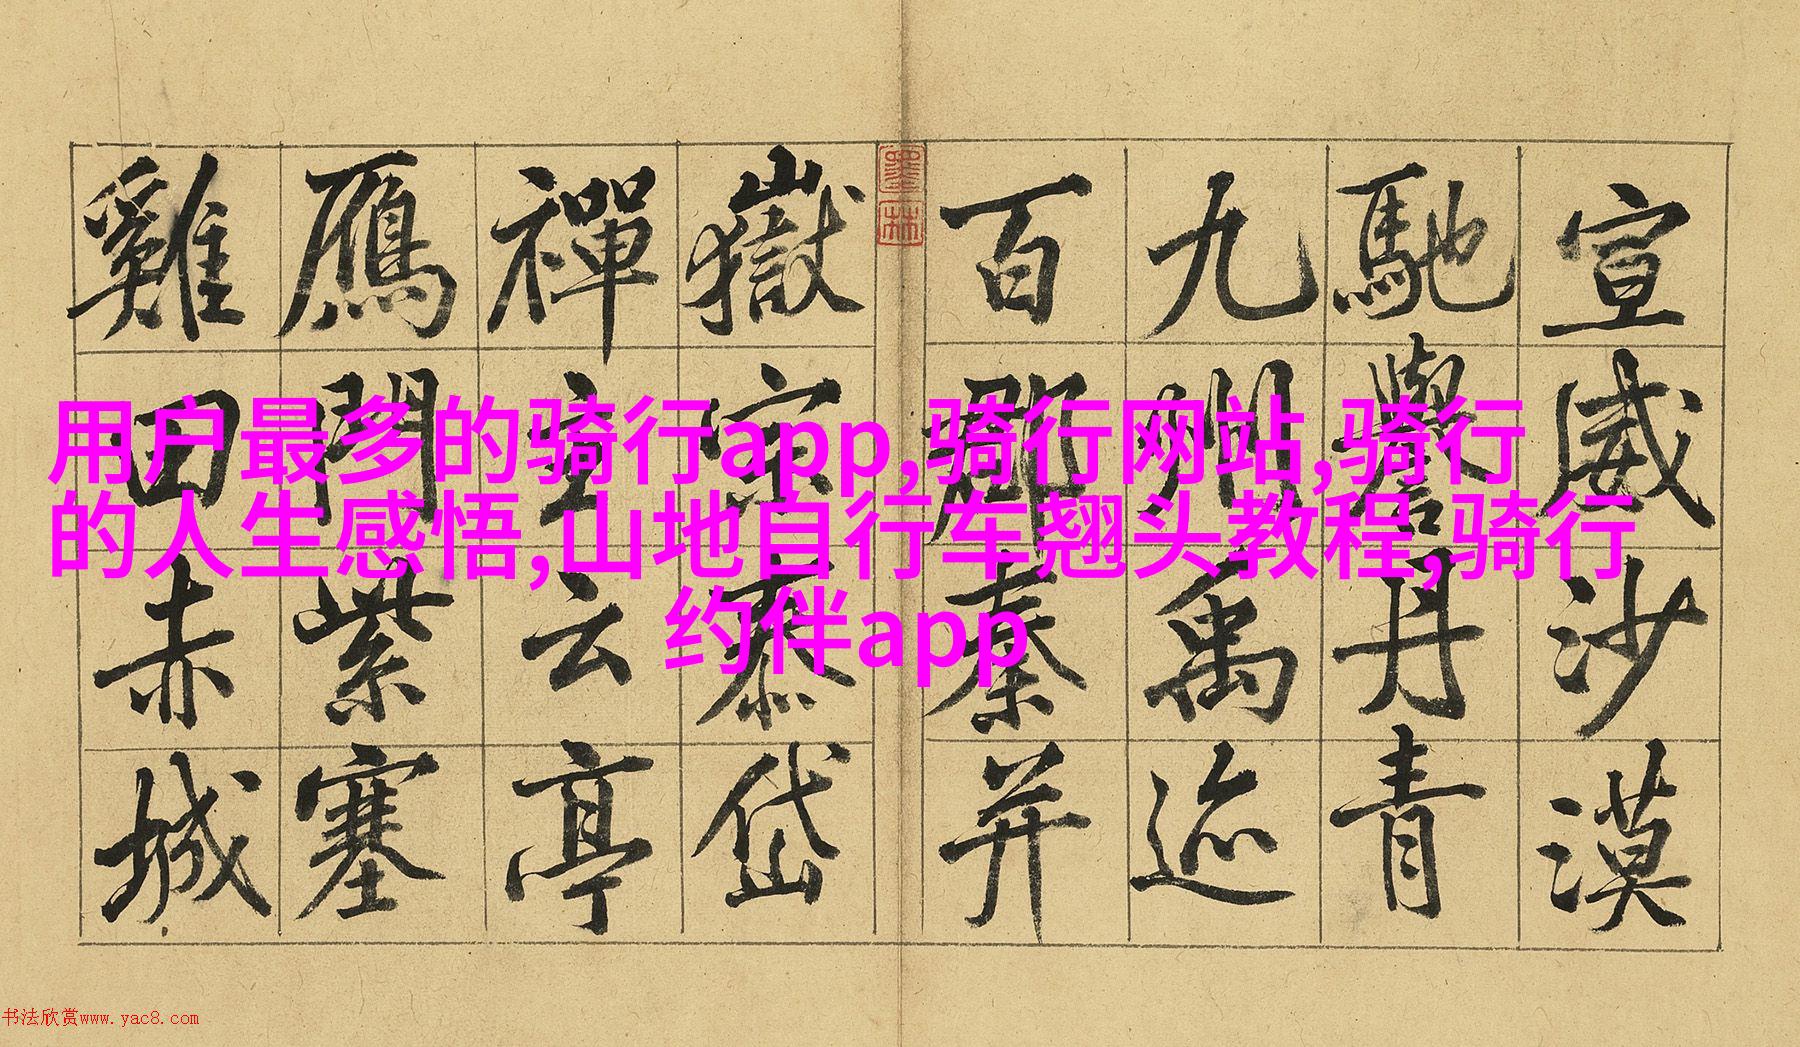 宣威沙漠
馳譽丹青
九州禹迹
百郡秦并
墨林
嶽宗泰岱
禪主云亭
鴈門紫塞
雞田赤城
用户最多的骑行app,骑行网站,骑行
的人生感悟,山地自行车翘头教程,骑行
约伴app
书法欣赏www.yac8.com